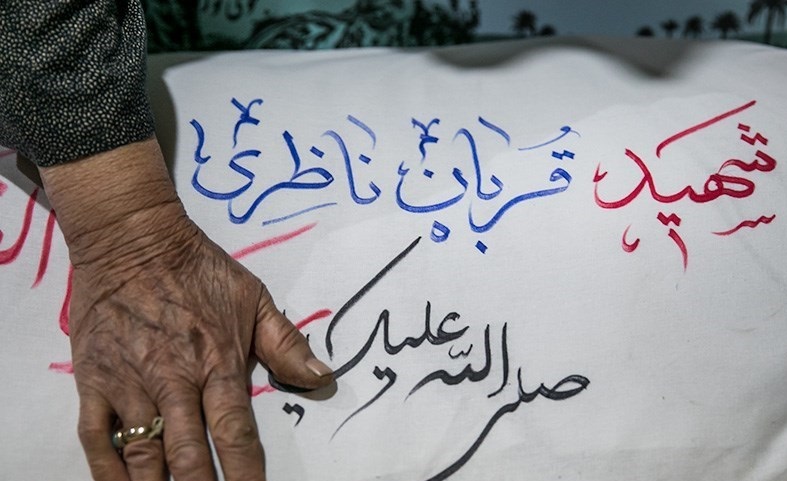 شهید قربان ناظری
صلی الله علیک یا